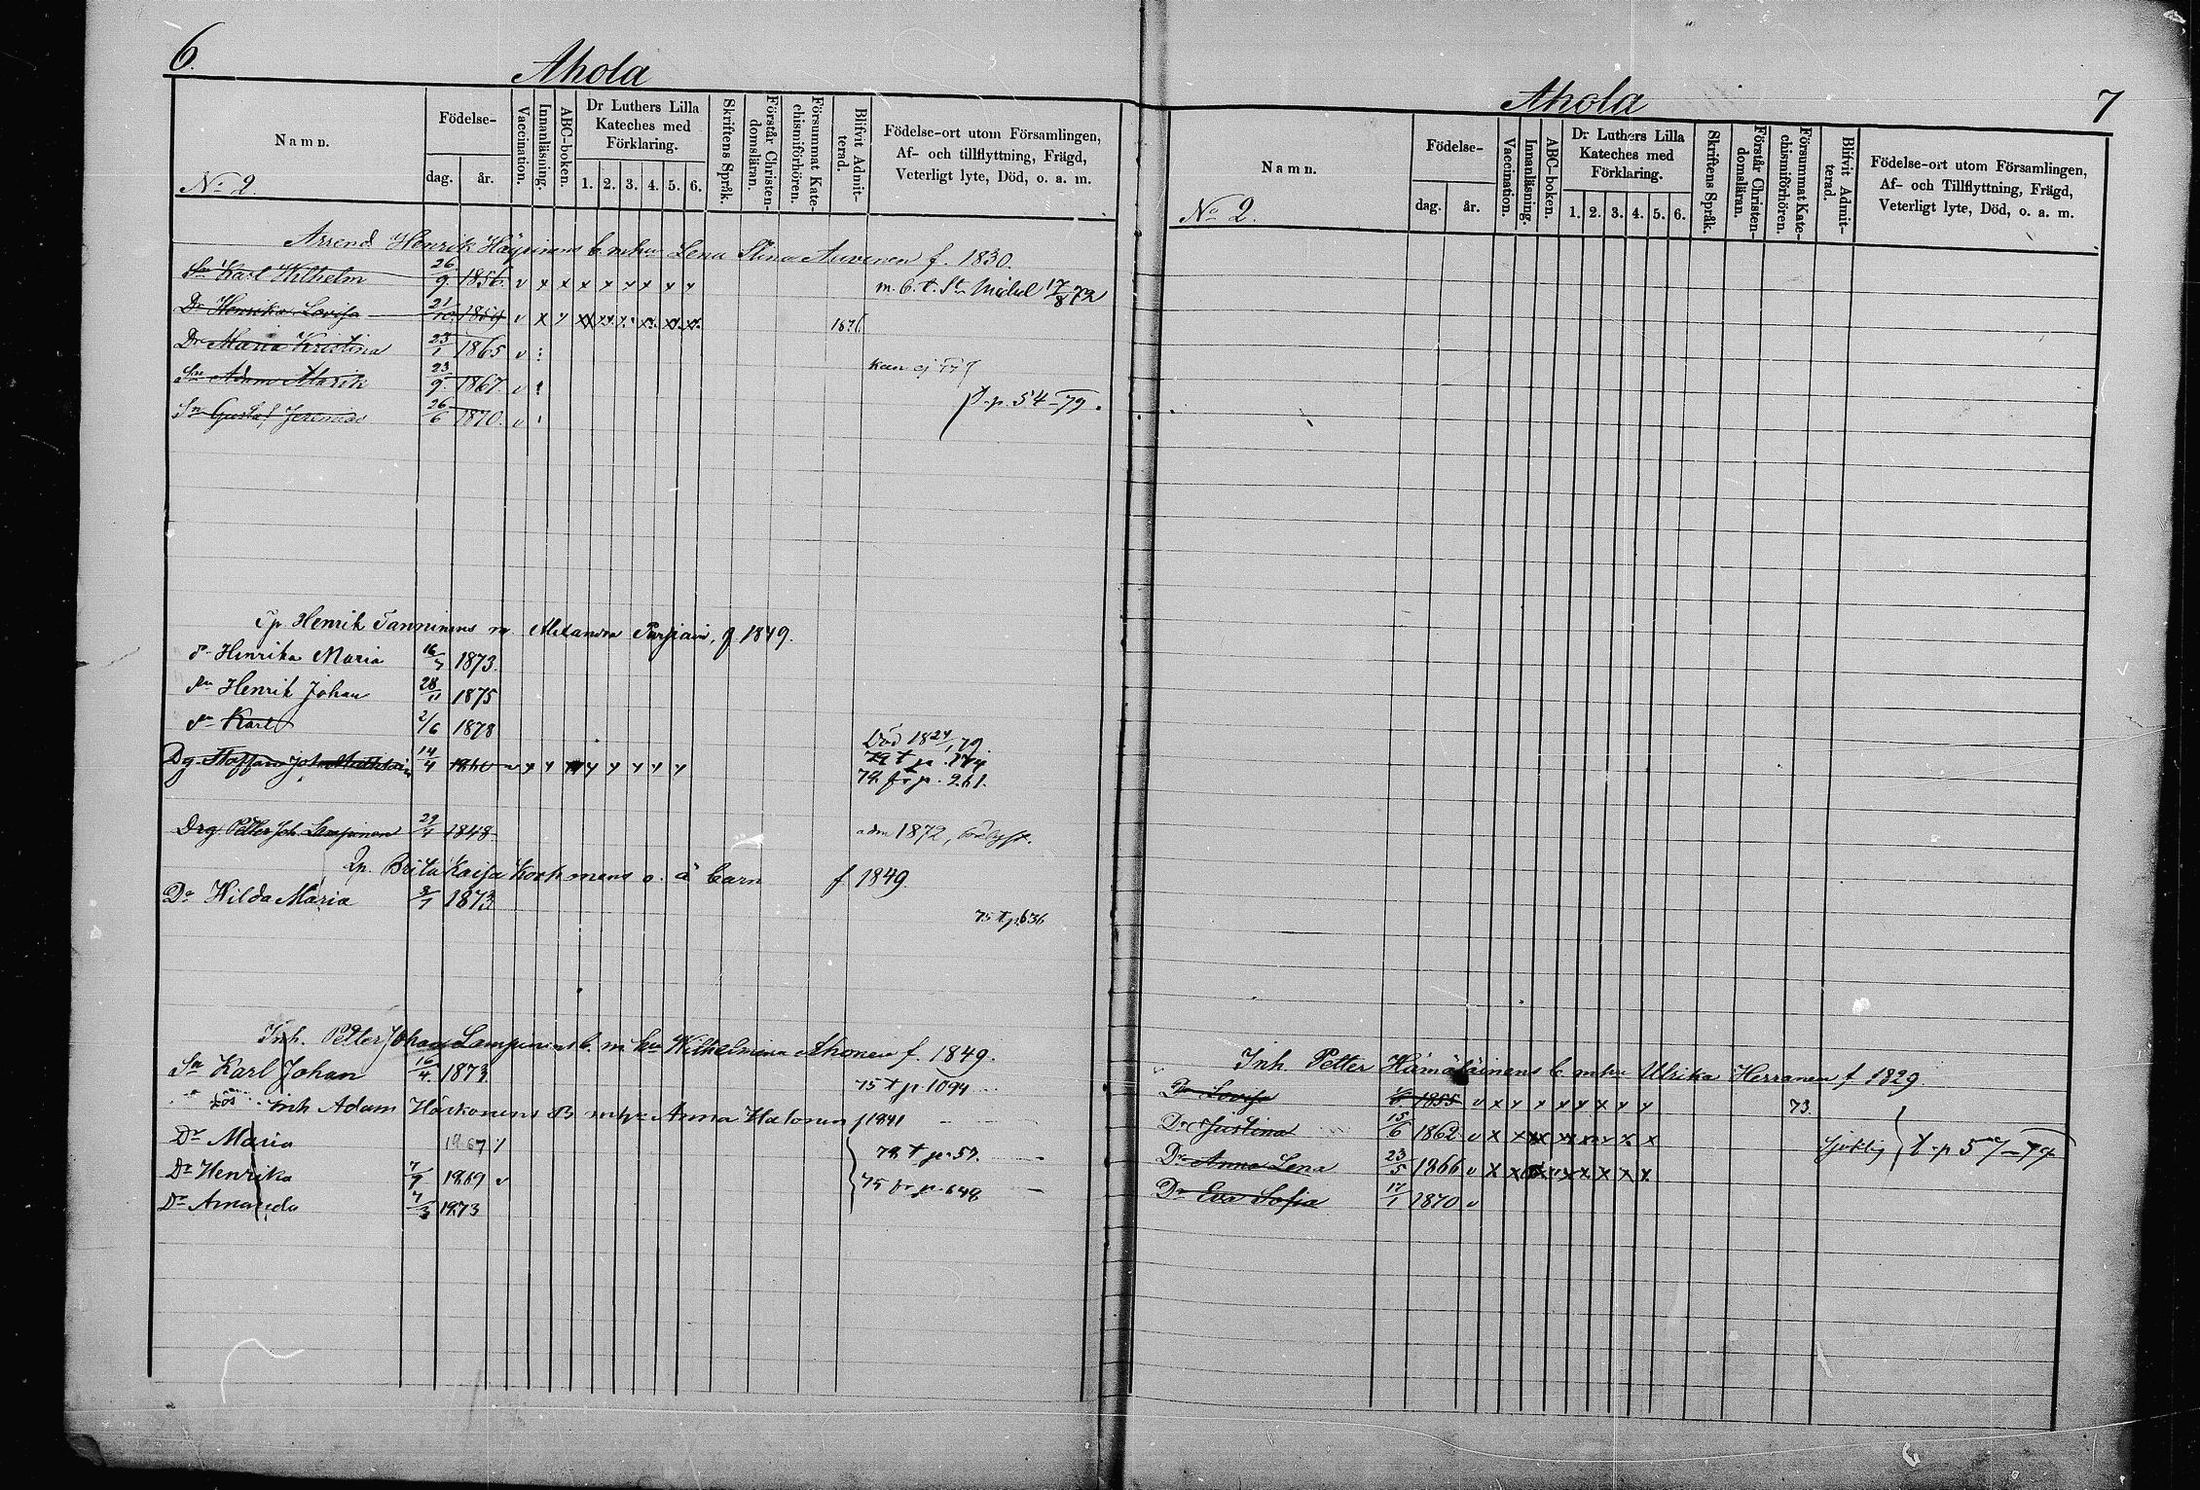 6.
Ahola
Namn.
Födelse-
dag.
år.
Vaccination.
Innanläsning.
ABC-boken.
Dr Luthers Lilla Kateches med Förklaring.
1. 2. 3. 4. 5. 6.
Skriftens Språk.
Förstår Christendomsläran.
Försummat Katechismiförhören.
Blifvit Admitterad.
Födelse-ort utom Församlingen, Af- och tillflyttning, Frägd, Veterligt lyte, Död, o. a. m.
No 2.
Arrend. Henrik b. m hu Lena Stina Auvinen f. 1830.
Sn Karl Wilhelm 26/9 1856. v x x x x x x x x m. b. t. St Michel 17/8 72
Dr Henrika Lovisa 21/10 1859 v x 1876
Dr Maria Kristina 23/1 1865 v
Sn Adam 23/9 1867 v kan ej
Sn Gustaf Jeremias 26/6 1870. v t. p. 54-79.
Henrik Tanninens m Alexandra f 1849.
dr Henrika Maria 16/7 1873.
sn Henrik Johan 28/11 1875
sn Karl 2/6 1878 Död 18 24/1 79.
Dg. Staffan Joh 14/4 79 t p. 174
79 fr p. 261.
Drg Petter Joh. Lampinen 29/4 1848 adm 1872,
Brita Kaisa Korhonens o. ä barn f 1849.
Dr Hilda Maria 1873
75 t p 636
Inh. Petter Johan Lampinens b. m hu Wilhelmina Ahonen f. 1849.
Sn Karl Johan 16/4. 1873 75 t p 1094
Lös inh Adam Härkönens B mhu Anna Halonen f 1841
Dr Maria 1867 79 t p. 57.
Dr Henrika 7/9 1869 v 75 fr p. 648
Dr Amanda 7/3 1873
Ahola
7
Namn.
Födelse-
dag.
år.
Vaccination.
Innanläsning.
ABC-boken.
Dr Luthers Lilla Kateches med Förklaring.
1. 2. 3. 4. 5. 6.
Skriftens Språk.
Förstår Christendomsläran.
Försummat Katechismiförhören.
Blifvit Admitterad.
Födelse-ort utom Församlingen, Af- och Tillflyttning, Frägd, Veterligt lyte, Död, o. a. m.
No 2.
Inh Petter Hämäläinens b. mhu Ulrika Herranen f 1829
Dr Lovisa 1855 v x x x x x x x x 73.
Dr Justina 15/6 1862 v x x sjuklig t. p 57-77
Dr Anna Lena 23/5 1866 v x x
Dr Eva Sofia 17/1 1870 v